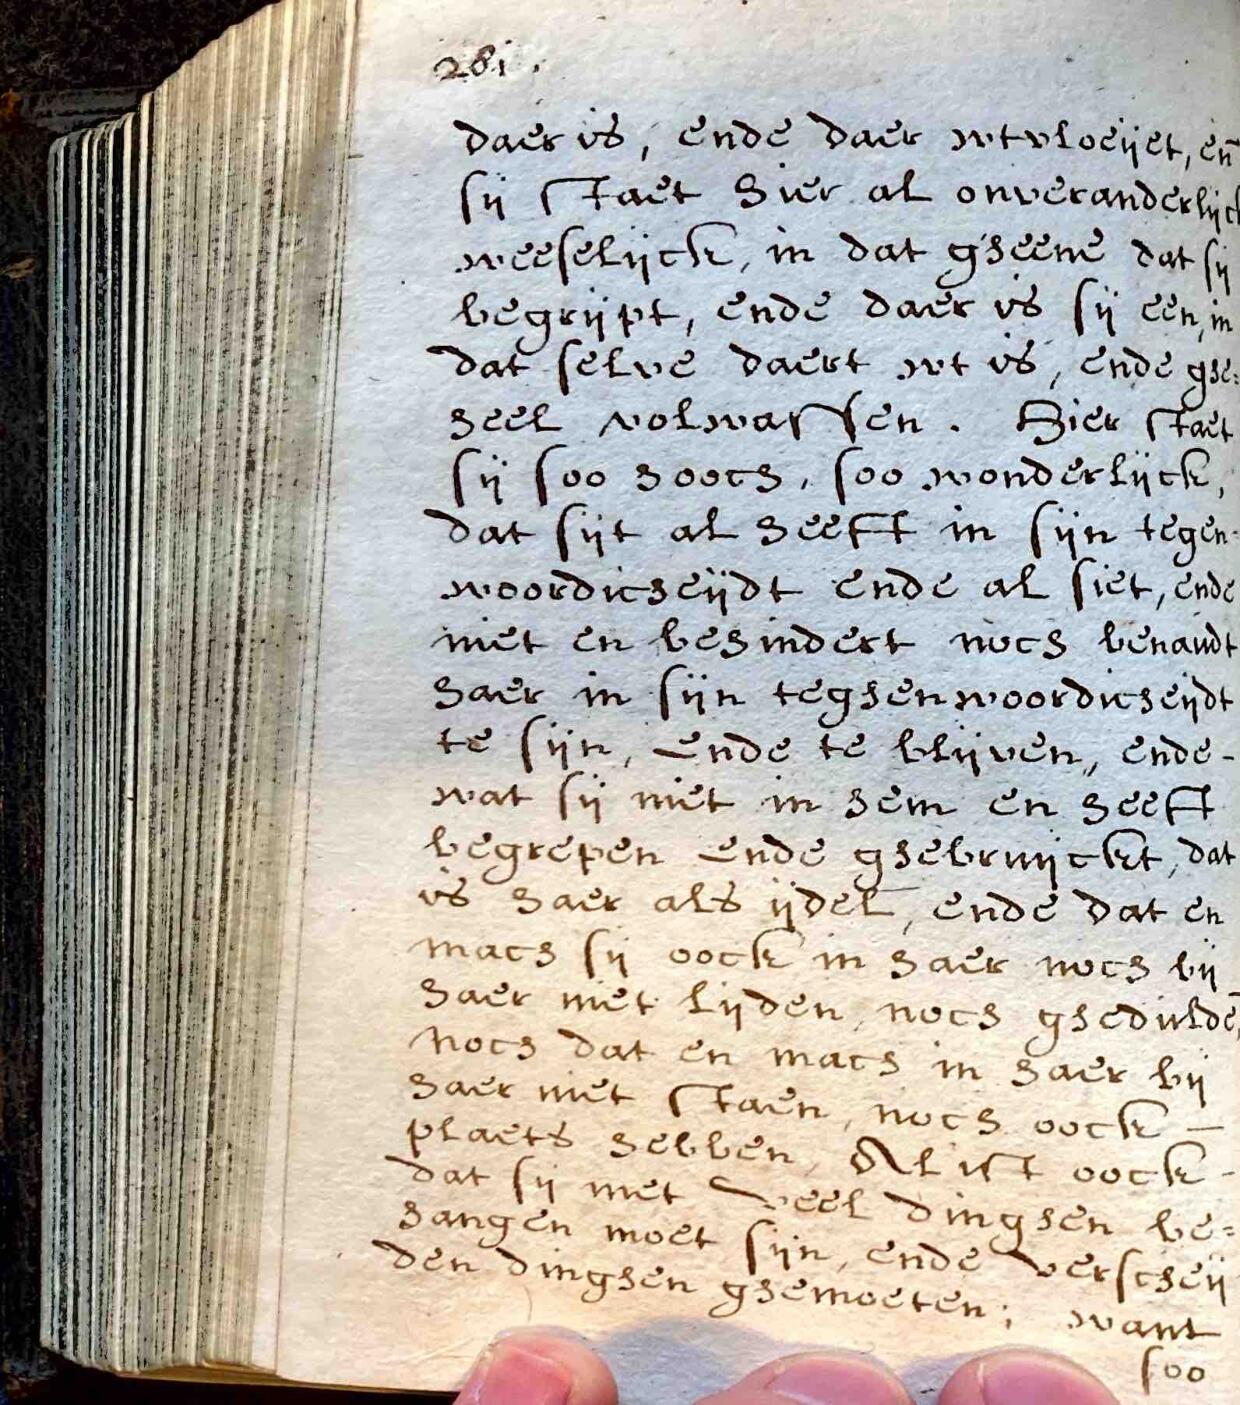 281.
daer is, ende daer wtvloeijet, en̄
sij staet hier al onveranderlijck
weeselijck, in dat gheene dat sij
begrijpt, ende daer is sij een, in
dat selve daert wt is, ende ghe:
heel volwassen. Hier staet
sij soo hooch, soo wonderlijck,
dat sijt al heeft in sijn tegen-
woordicheijdt ende al siet, ende
niet en behindert noch benaudt
haer in sijn teghenwoordicheijdt
te sijn, ende te blijven, ende-
wat sij niet in hem en heeft
begrepen ende ghebruijckt, dat
is haer als ijdel, ende dat en
mach sij oock in haer noch bij
haer niet lijden, noch ghedulde̅,
noch dat en mach in haer bij
haer niet staen, noch oock —
plaets hebben, Al ist oock -
dat sij met veel dinghen be=
hangen moet sijn, ende verscheij
den dinghen ghemoeten; want
soo